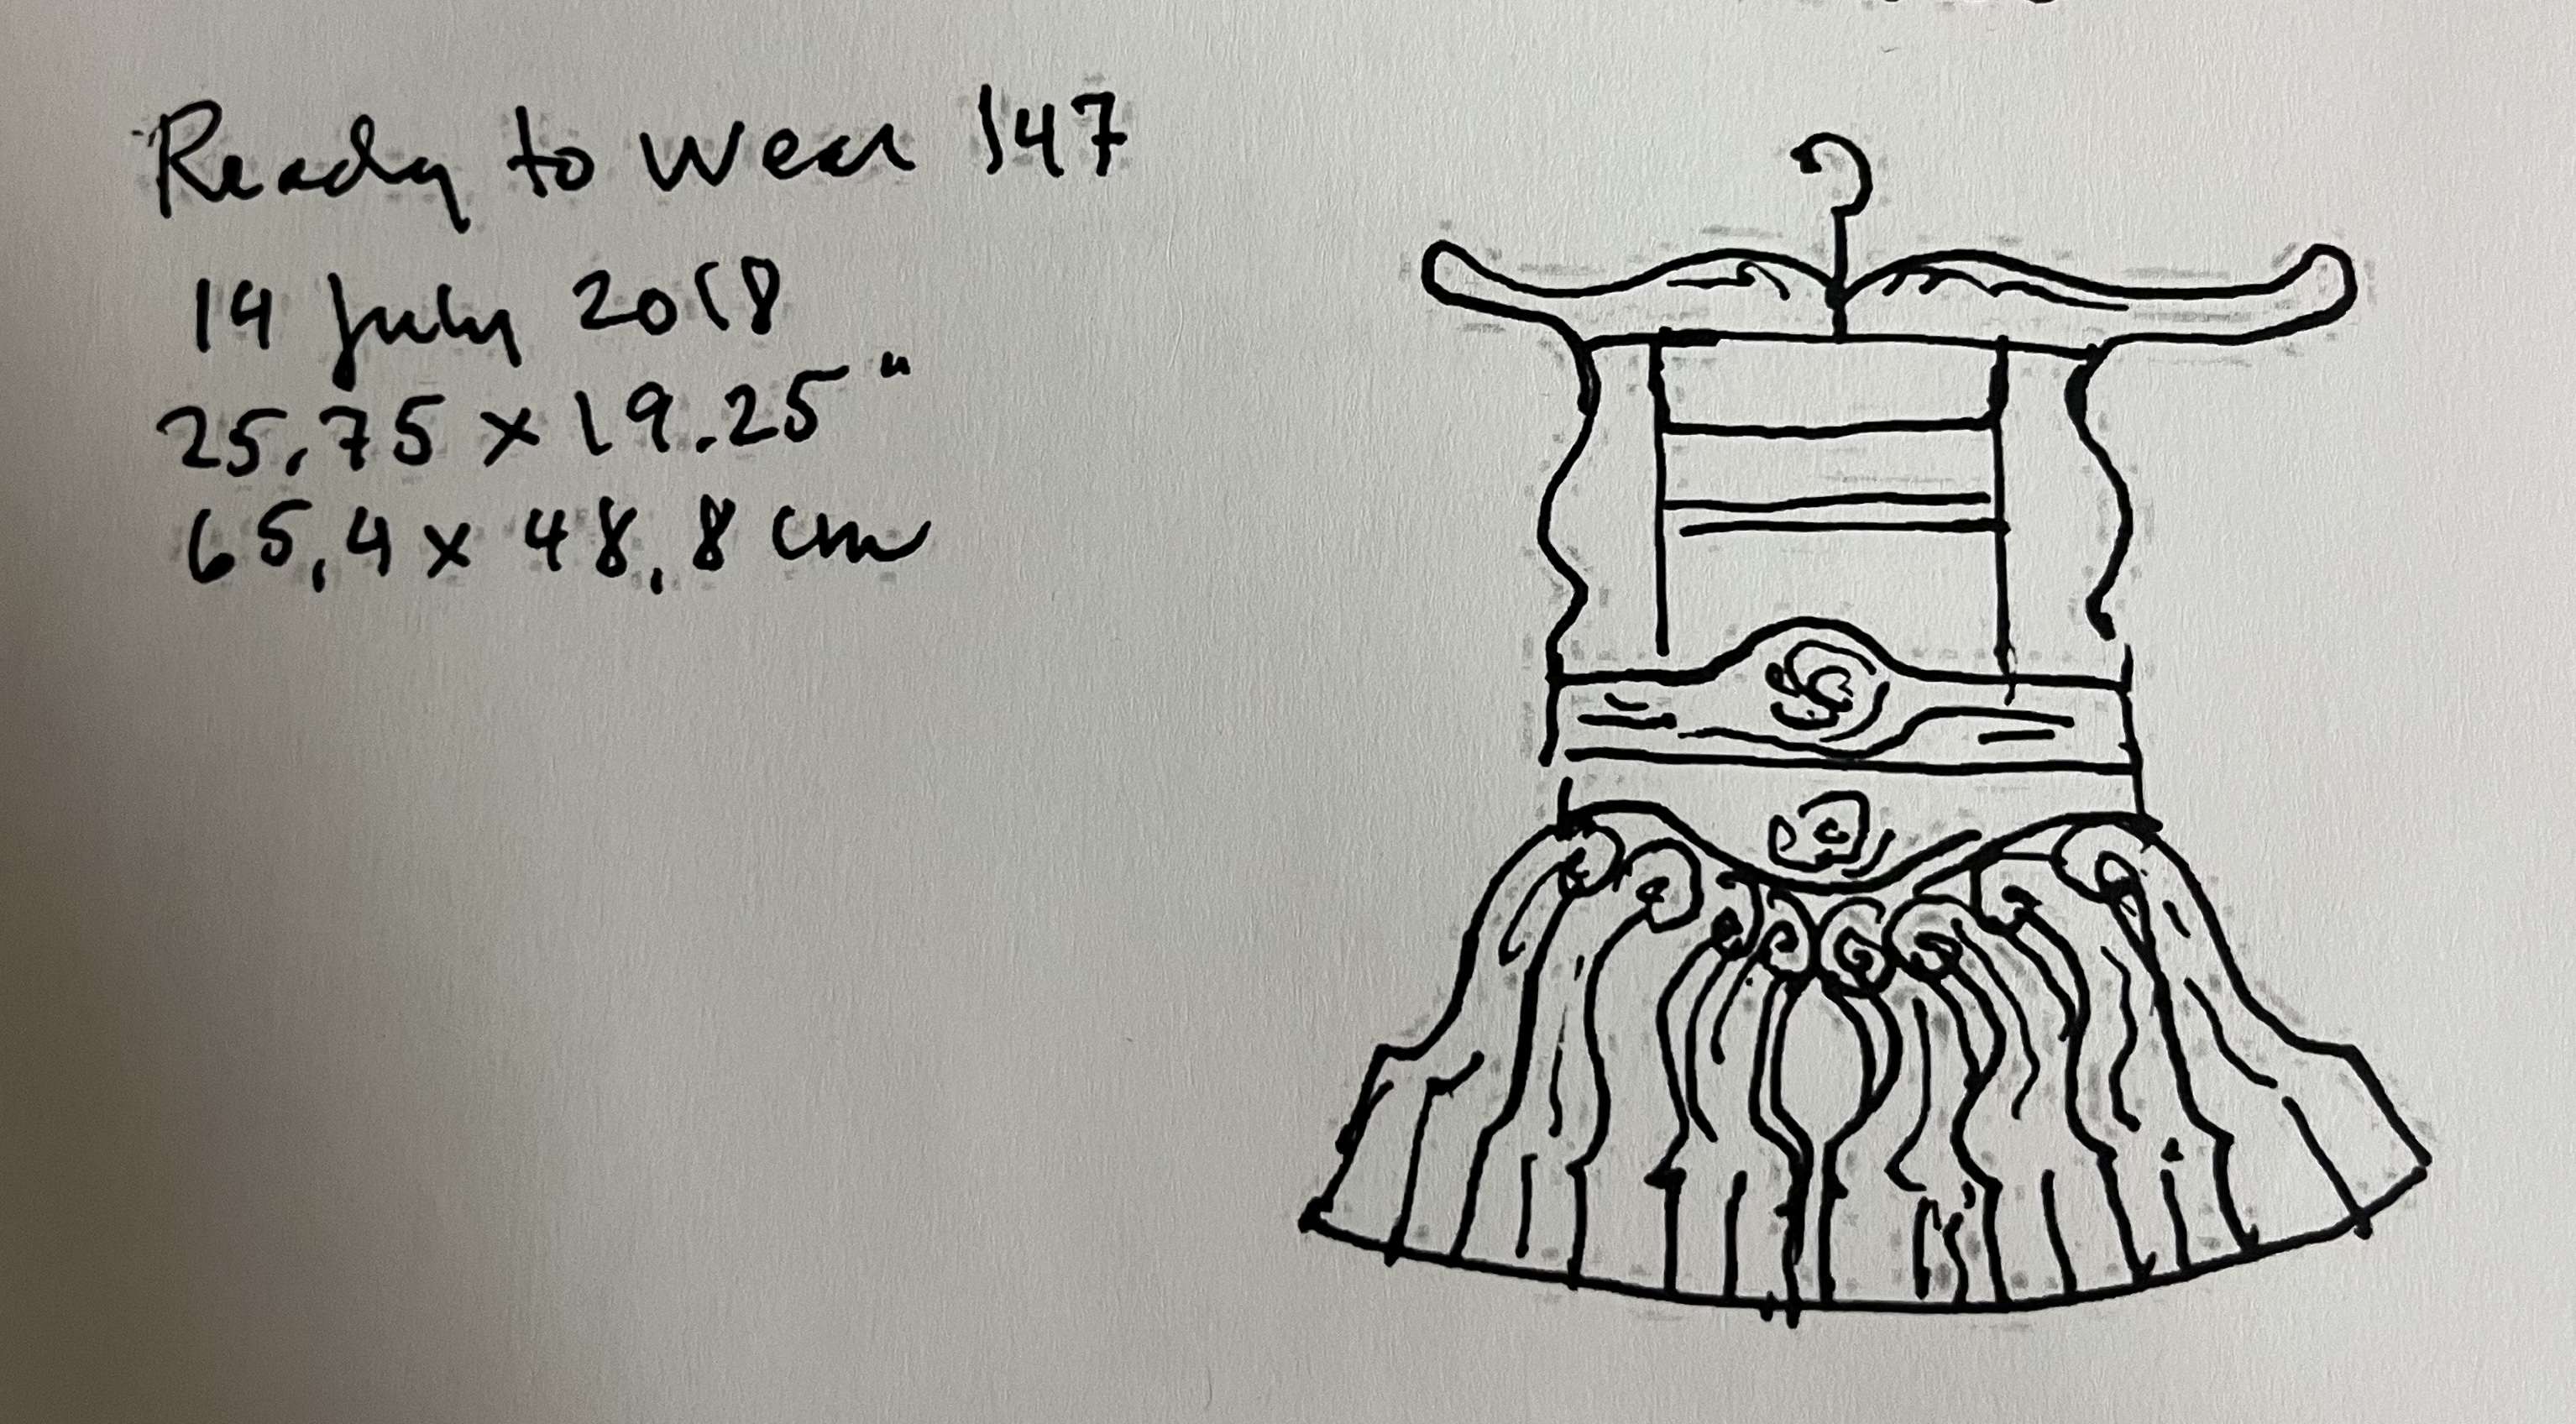 Ready to Wear 147
14 July 2018
25.75 x 19.25"
65,4 x 48,8 cm